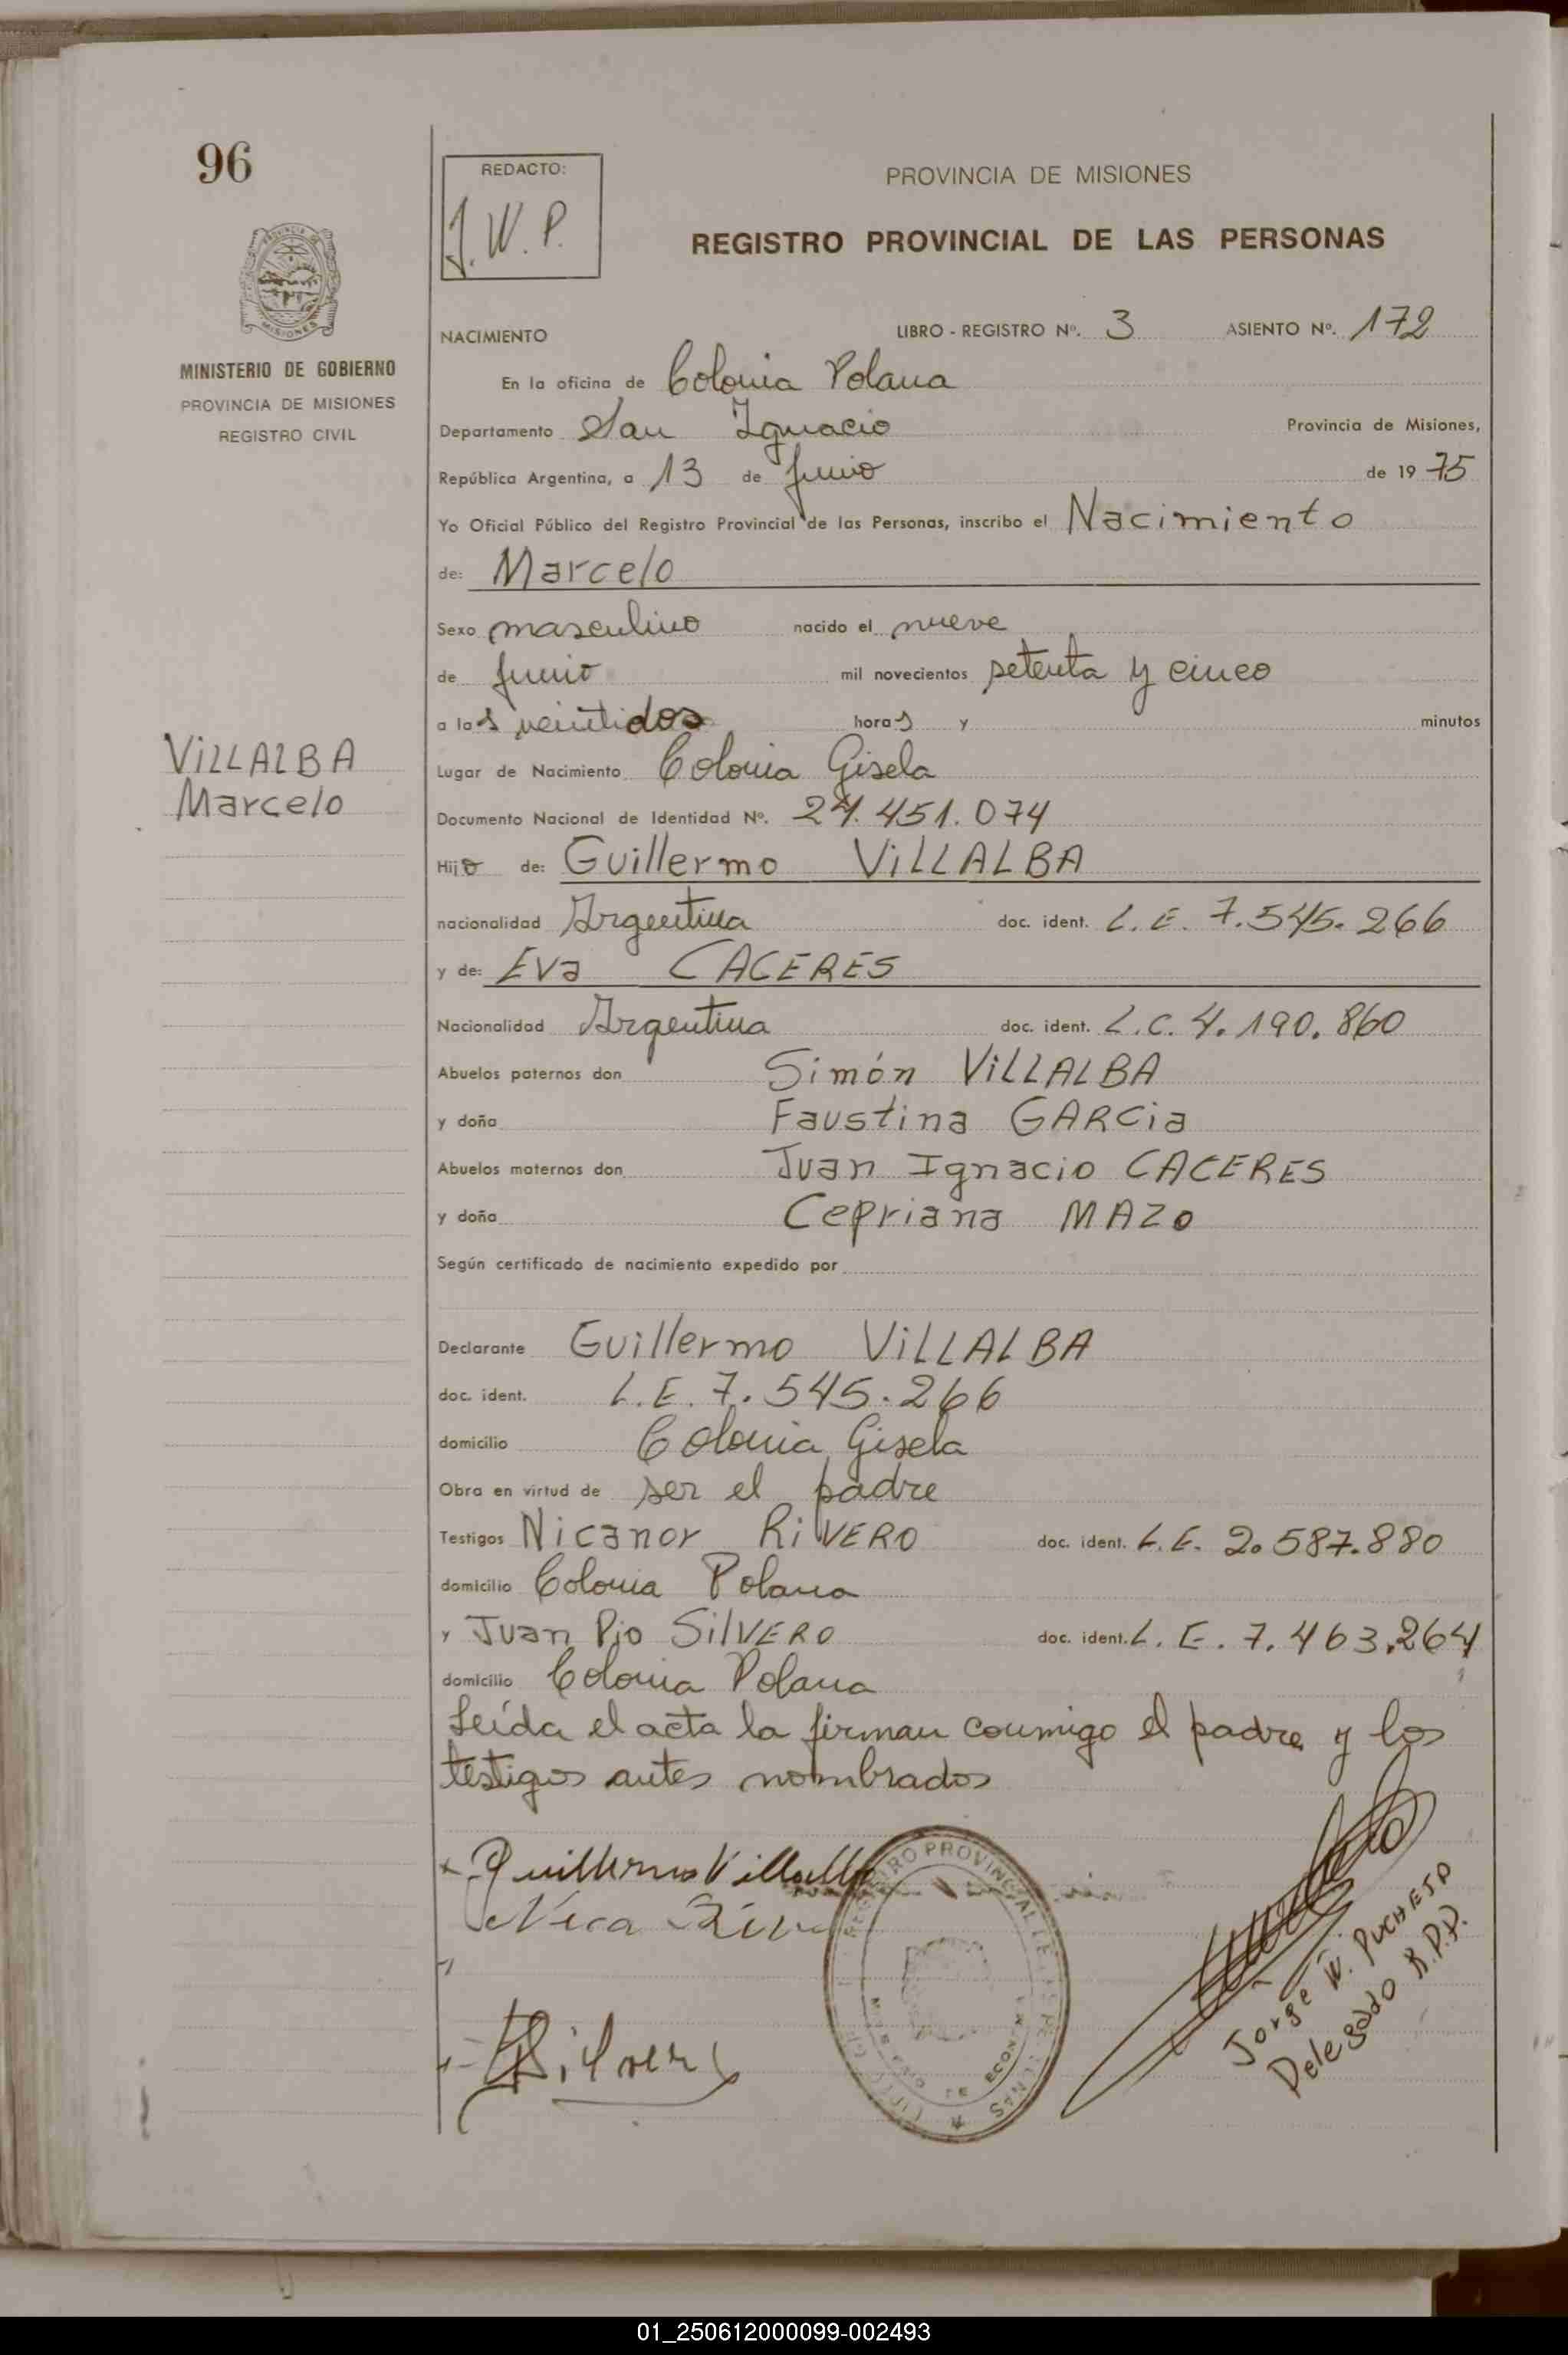 96
REDACTO:
J.W.P.
PROVINCIA DE MISIONES
REGISTRO PROVINCIAL DE LAS PERSONAS
MISIONES
MINISTERIO DE GOBIERNO
PROVINCIA DE MISIONES
REGISTRO CIVIL
NACIMIENTO LIBRO - REGISTRO Nº. 3 ASIENTO Nº. 172
En la oficina de Colonia Polana
Departamento San Ignacio Provincia de Misiones,
República Argentina, a 13 de Junio de 1975
Yo Oficial Público del Registro Provincial de las Personas, inscribo el Nacimiento
de: Marcelo
Sexo masculino nacido el nueve
de Junio mil novecientos setenta y cinco
a las veintidos horas y minutos
VILLALBA
Marcelo
Lugar de Nacimiento Colonia Gisela
Documento Nacional de Identidad Nº. 24.451.074
Hijo de: Guillermo VILLALBA
nacionalidad Argentina doc. ident. L.E. 7.545.266
y de: Eva CACERES
Nacionalidad Argentina doc. ident. L.C. 4.190.860
Abuelos paternos don Simón VILLALBA
y doña Faustina GARCia
Abuelos maternos don Juan Ignacio CACERES
y doña Cepriana MAZO
Según certificado de nacimiento expedido por
Declarante Guillermo VILLALBA
doc. ident. L.E. 7.545.266
domicilio Colonia Gisela
Obra en virtud de ser el padre
Testigos Nicanor RiVERO doc. ident. L.E. 2.587.880
domicilio Colonia Polana
y Juan Pio SilVERO doc. ident. L.E. 7.463.264
domicilio Colonia Polana
Leída el acta la firman conmigo el padre y los
testigos antes nombrados
Guillermo Villalba
REGISTRO PROVINCIAL DE LAS PERSONAS
Jorge W. PUCHETA
Delegado R.P.P.
01_250612000099-002493